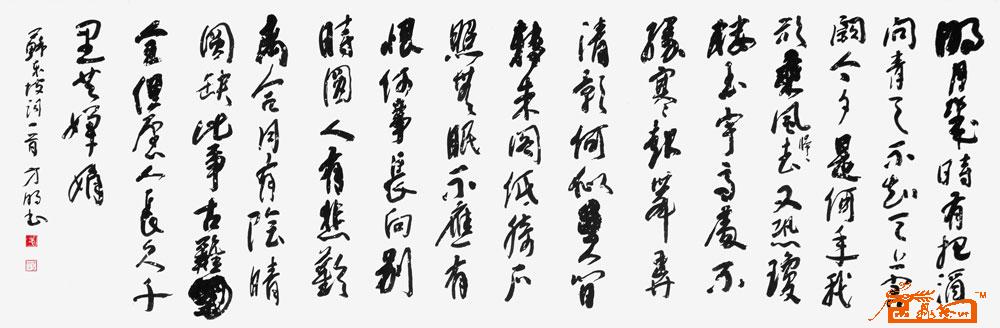 明月幾時有把酒
问青天不知天上宫
阙今夕是何年我
欲乘風歸去又恐瓊
楼玉宇高處不
勝寒起舞弄
清影何似人間
轉朱阁低绮户
照無眠不應有
恨何事長向别
時圓人有悲歡
离合月有陰晴
圆缺此事古難
全但愿人長久千
里共嬋娟
蘇东坡词一首 方明书